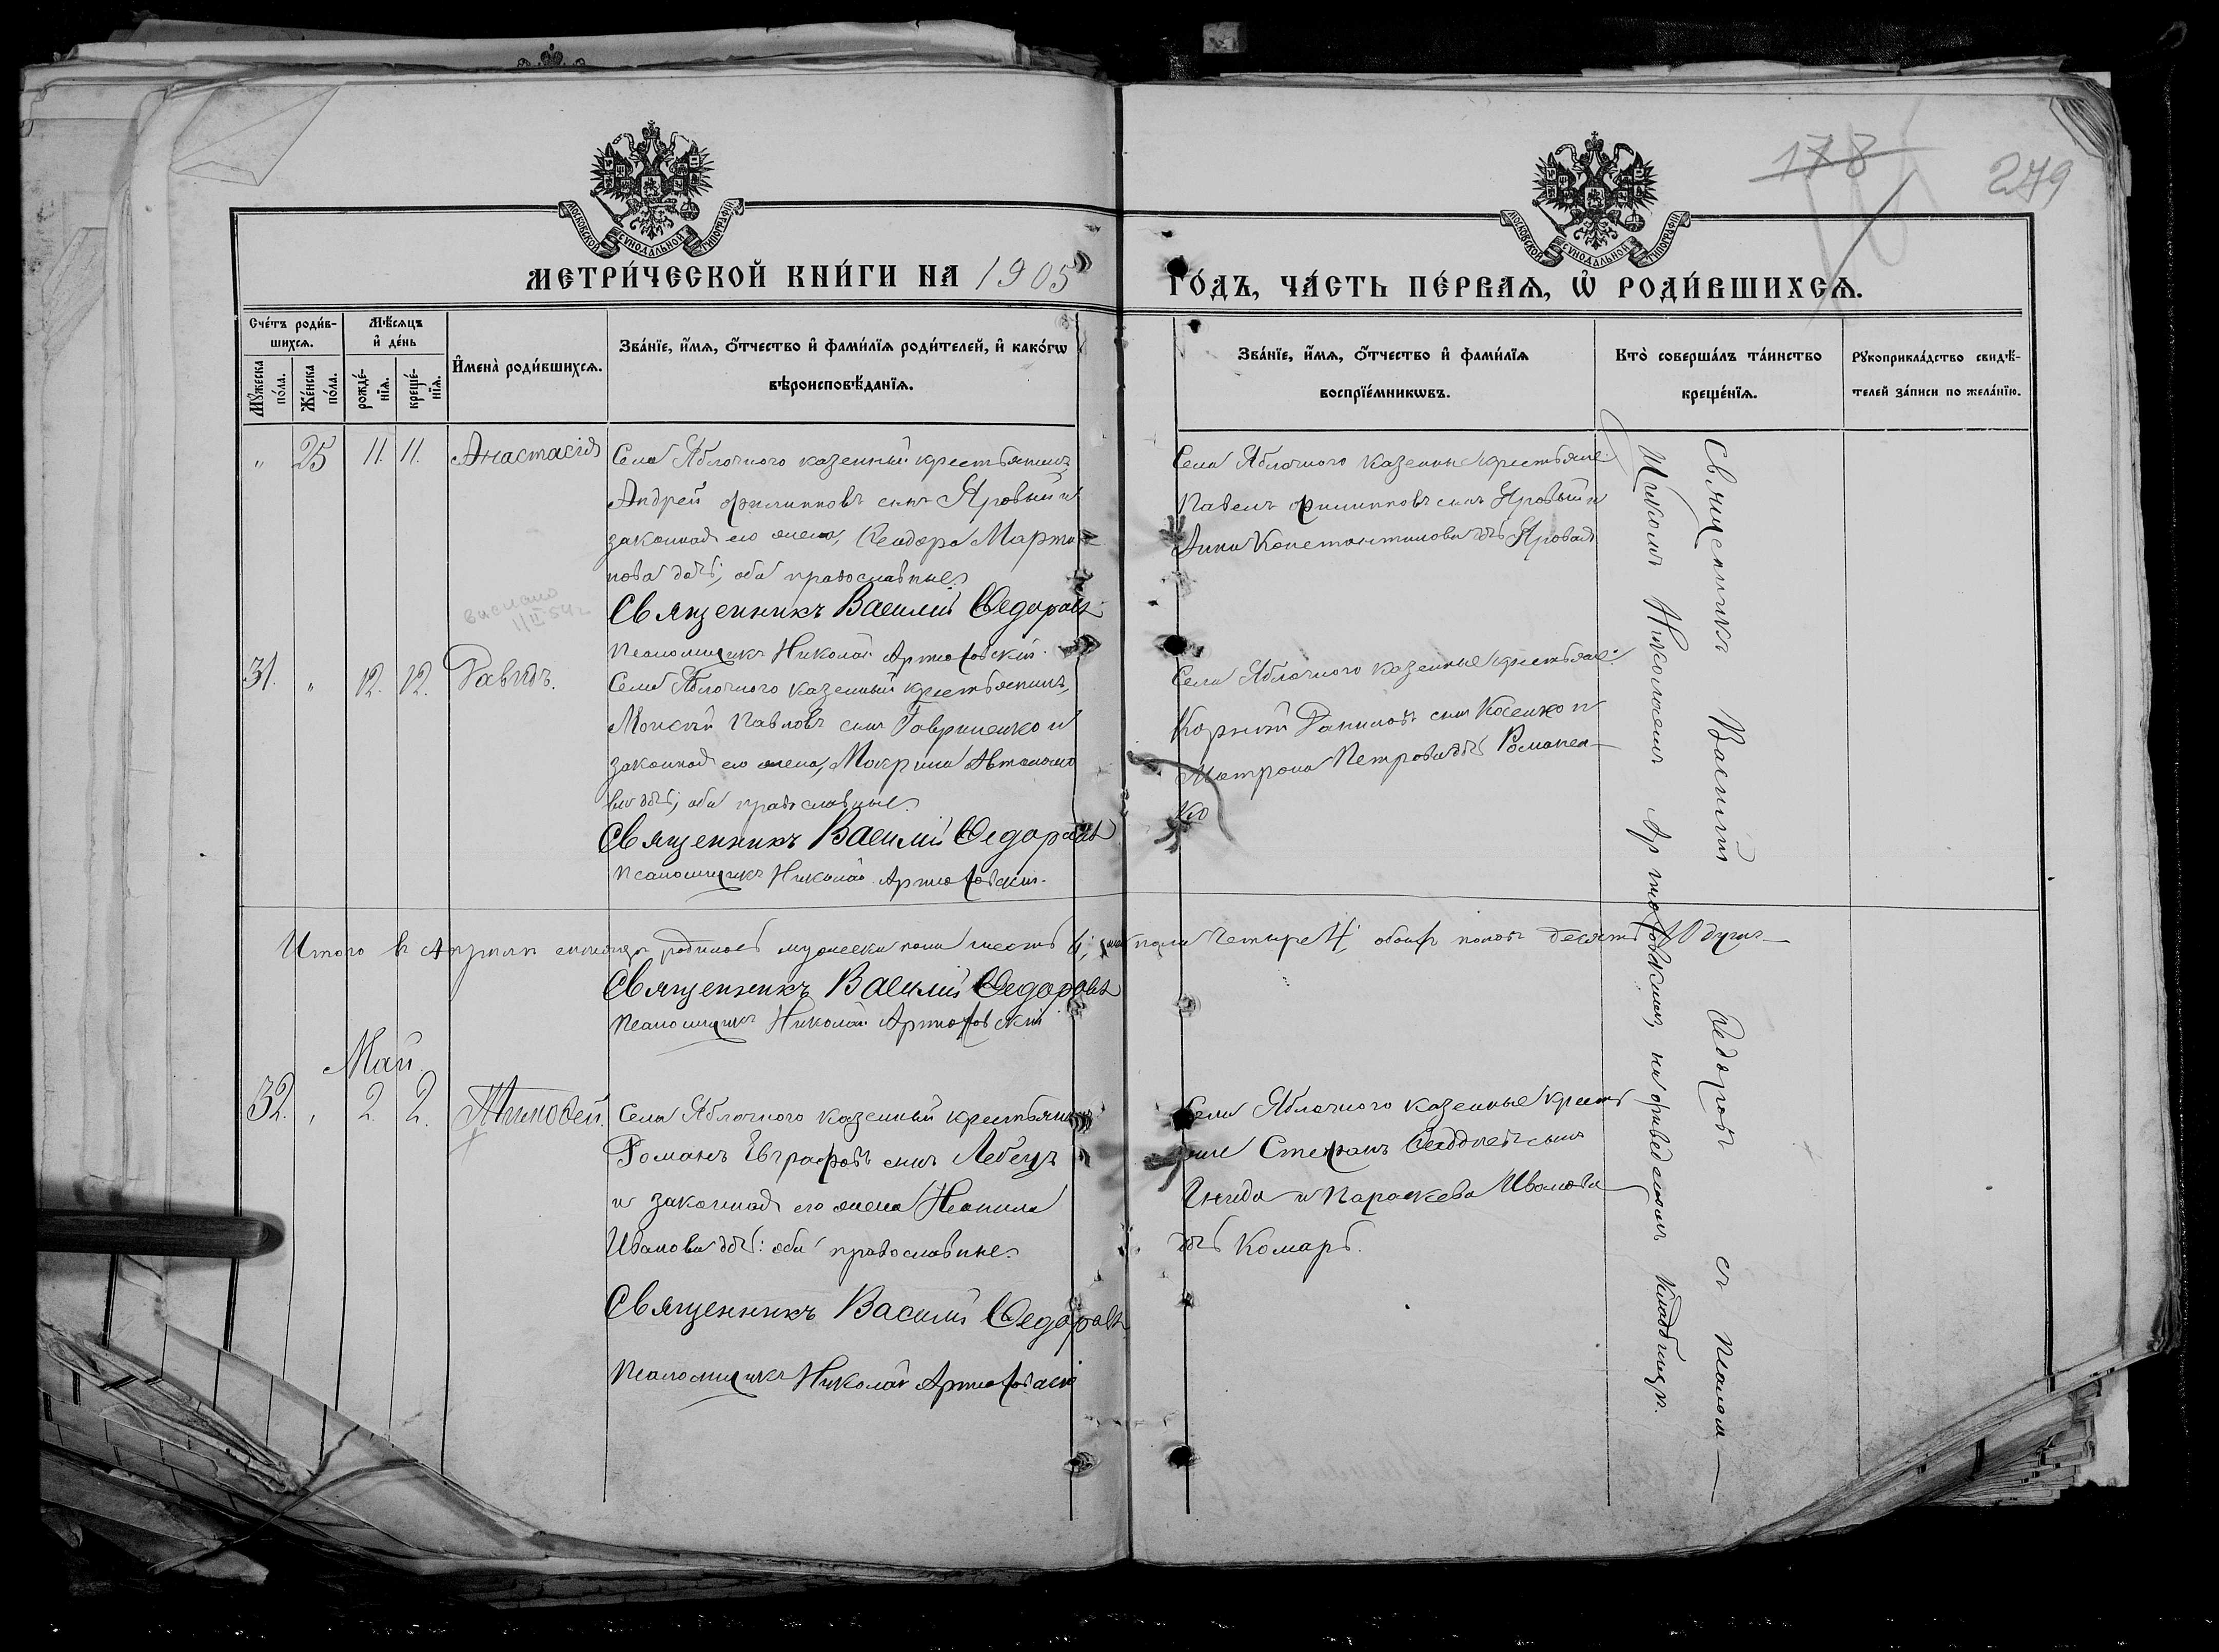 178
279
МОСКОВСКОЙ СѴНОДАЛЬНОЙ ТИПОГРАФІИ
МОСКОВСКОЙ СѴНОДАЛЬНОЙ ТИПОГРАФІИ
МЕТРИ́ЧЕСКОЙ КНИ́ГИ НА 1905 ГО́ДЪ, ЧА́СТЬ ПЕ́РВАѦ, Ѡ҆ РОДИ́ВШИХСѦ.
Сче́тъ роди́в-
шихсѧ.
Мꙋ́жеска
по́ла.
Же́нска
по́ла.
Мѣ́сѧцъ
и҆ де́нь
рожде́-
нїѧ.
креще́-
нїѧ.
И҆мена̀ роди́вшихсѧ.
Зва́нїе, и҆́мѧ, ѻ҆́тчество и҆ фами́лїѧ роди́телей, и҆ како́гѡ
вѣроисповѣ́данїѧ.
Зва́нїе, и҆́мѧ, ѻ҆́тчество и҆ фами́лїѧ
воспрїе́мникѡвъ.
Кто̀ соверша́лъ та́инство
креще́нїѧ.
Рꙋкоприкла́дство свидѣ́-
телей за́писи по жела́нїю.
" 25 11. 11. Анастасія
Села Яблочного казенный крестьянинъ
Андрей Филипповъ сынъ Яровый и
законная его жена, Ѳеодора Марти-
нова дочь, оба православные.
Священникъ Василій Ѳедоровъ
Псаломщикъ Николай Артюховскій.
Села Яблочного казенные крестьяне:
Павелъ Филипповъ сынъ Яровый и
Анна Константинова дчь Яровая
выслано
11/II 54 г
31. " 12. 12. Давидъ.
Села Яблочного казенный крестьянинъ,
Моисей Павловъ сынъ Гавриленко и
законная его жена, Макрина Автономо
ва дчь, оба православные.
Священникъ Василій Ѳедоровъ
Псаломщикъ Николай Артюховскій.
Села Яблочного казенные крестьяне:
Корній Даниловъ сынъ Косенко и
Матрона Петрова дчь Романен-
ко
Итого въ Апрѣлѣ мѣсяцѣ родилось мужеска пола шесть 6, жен. пола четыре 4, обоихъ половъ десять 10 душъ—
Священникъ Василій Ѳедоровъ
Псаломщикъ Николай Артюховскій
Май.
32. " 2. 2. Тимоѳей.
Села Яблочного казенный крестьянинъ
Романъ Евграфовъ сынъ Лебець
и законная его жена Неонила
Иванова дчь: оба православные.
Священникъ Василій Ѳедоровъ
Псаломщикъ Николай Артюховскій
Села Яблочного казенные крестья
не Стефанъ Ѳаддеевъ сынъ
Гнида и Параскева Иванова
дчь Комарь.
Священникъ Василій Ѳедоровъ съ псалом—
щикомъ Николаемъ Артюховскимъ, на приведенномъ кладбищѣ.